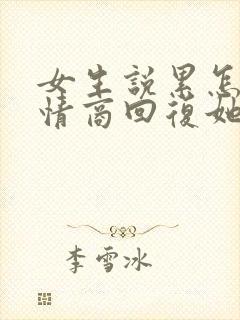 女生説累怎
情商回復她
李雪冰